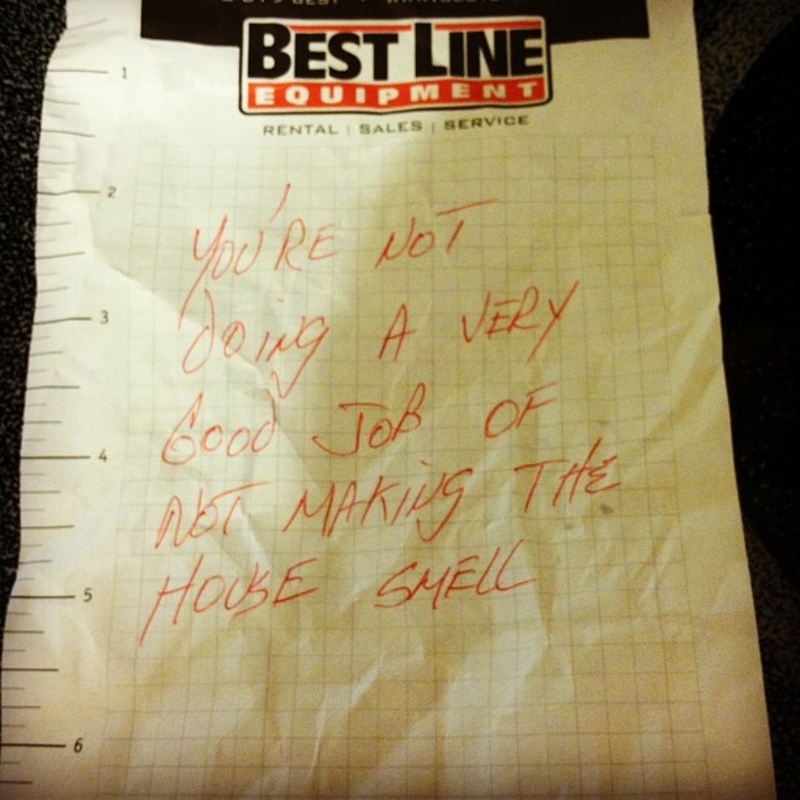 BEST LINE
EQUIPMENT
RENTAL | SALES | SERVICE
1
2
YOU'RE NOT
3
DOING A VERY
GOOD JOB OF
4
NOT MAKING THE
5
HOUSE SMELL
6